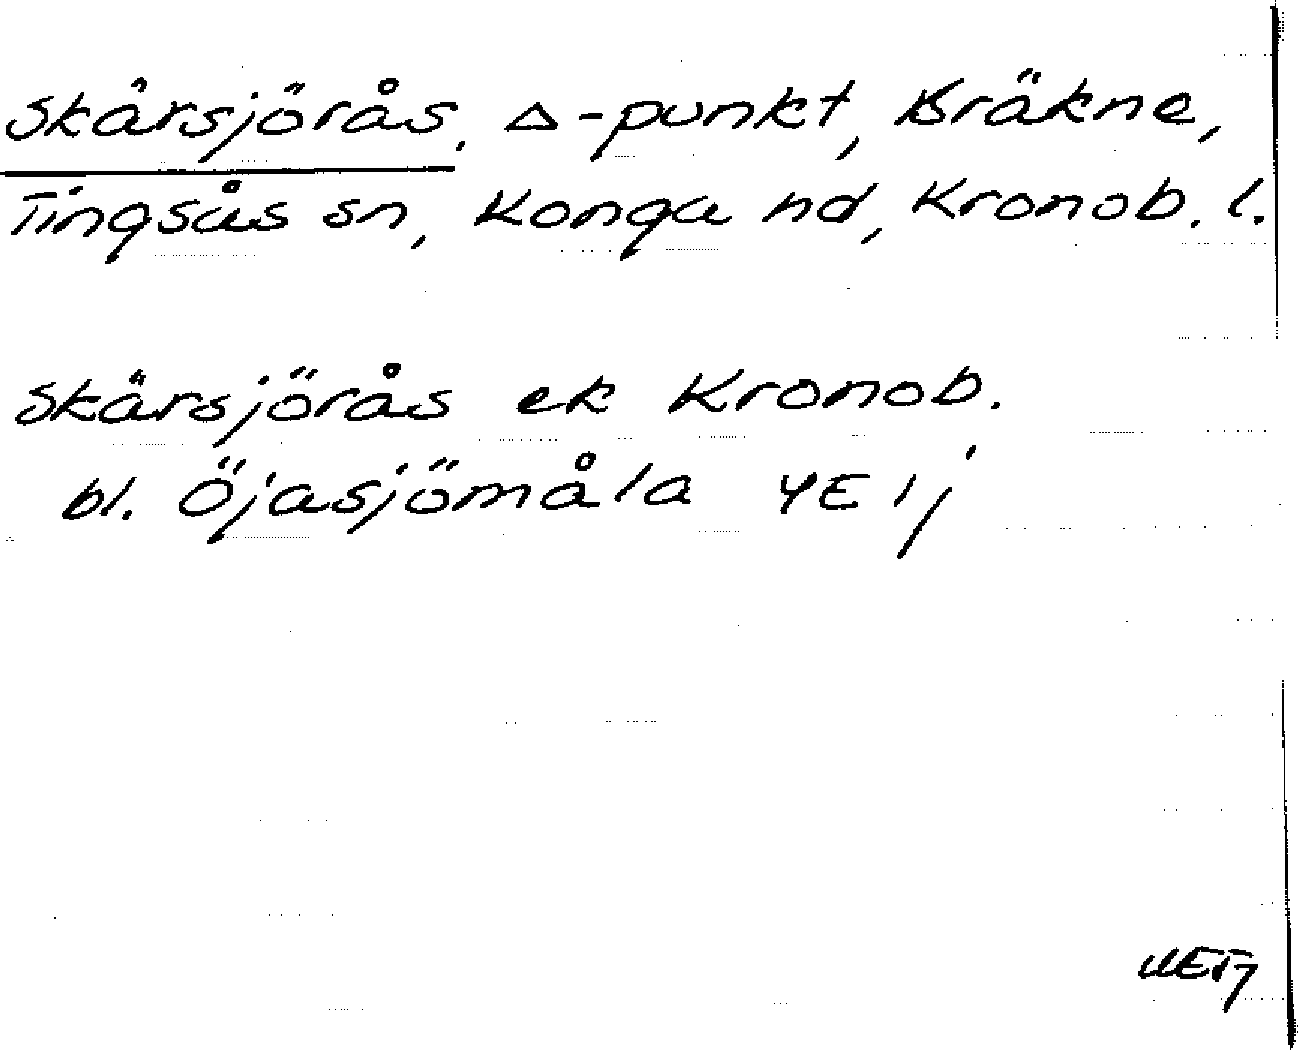 Skärsjörås, Δ-punkt, Bräkne,
Tingsås sn, Konga hd, Kronob. l.
Skärsjörås ek Kronob.
bl. Öjasjömåla 4E 1j